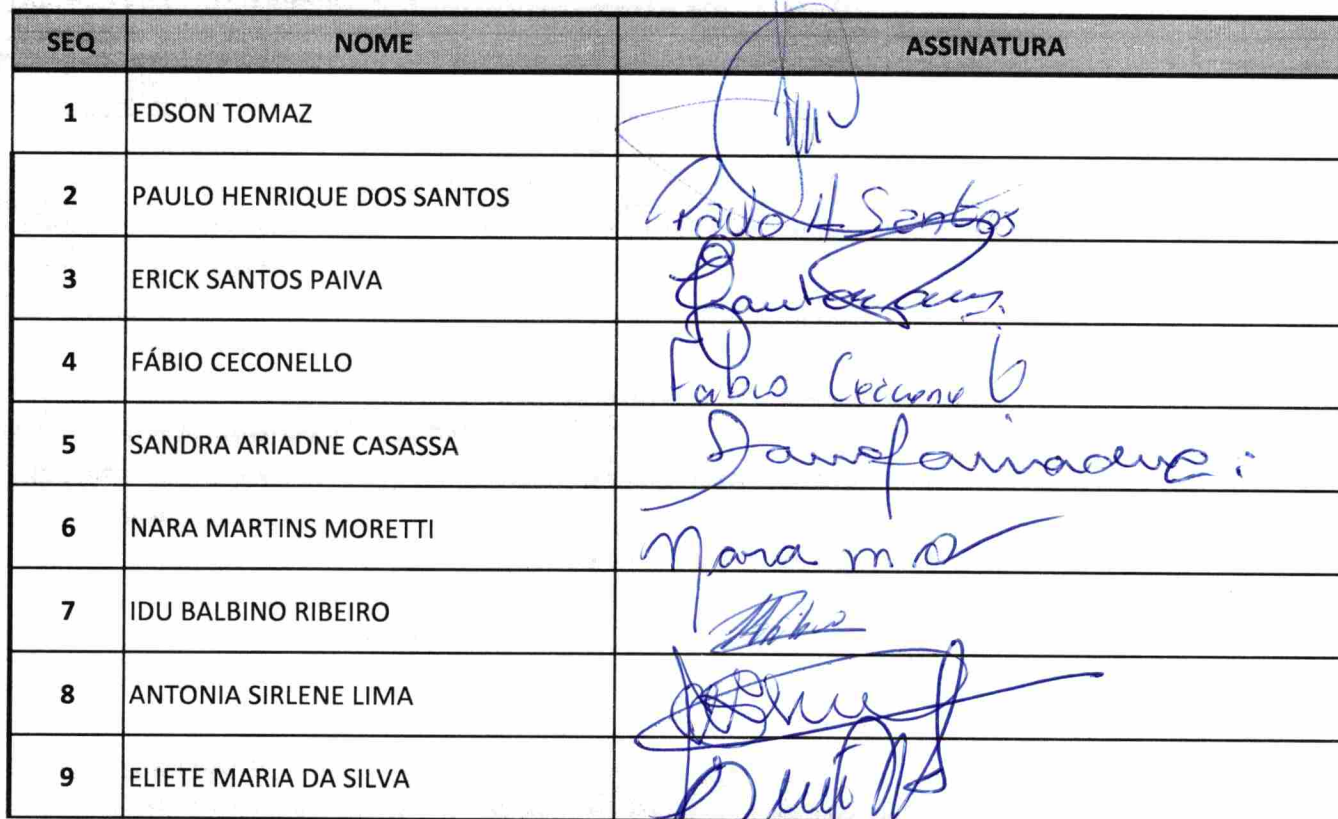 SEQ NOME ASSINATURA
1 EDSON TOMAZ
2 PAULO HENRIQUE DOS SANTOS Paulo H Santos
3 ERICK SANTOS PAIVA
4 FÁBIO CECONELLO Fabio
5 SANDRA ARIADNE CASASSA
6 NARA MARTINS MORETTI Nara m
7 IDU BALBINO RIBEIRO
8 ANTONIA SIRLENE LIMA
9 ELIETE MARIA DA SILVA